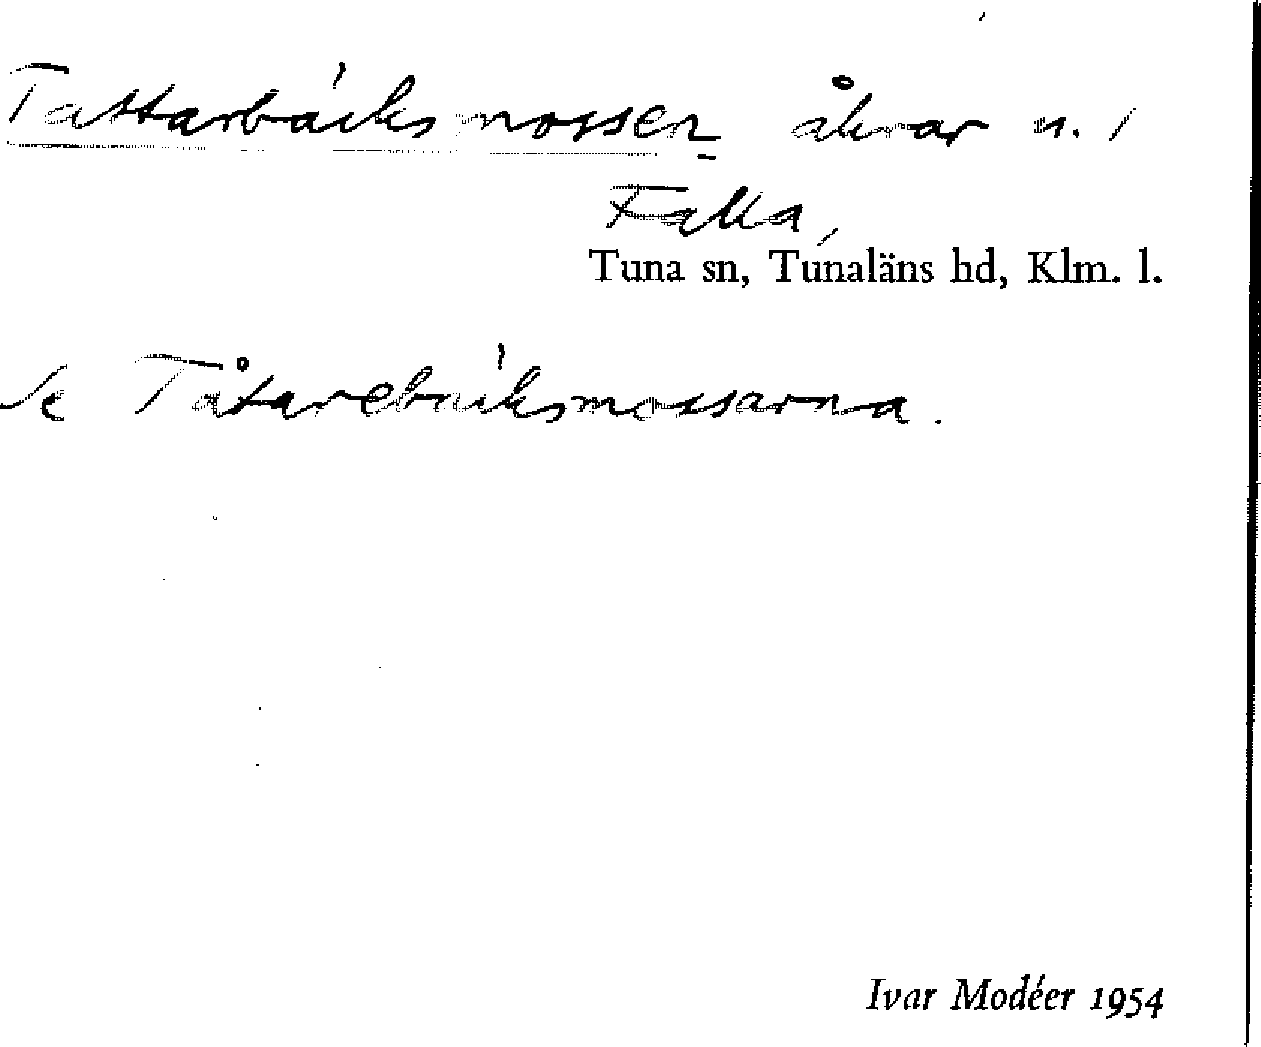 Tattarbäcksmossen åkrar n. i
Falla,
Tuna sn, Tunaläns hd, Klm. l.
Se Tåtarebäcksmossarna.
Ivar Modéer 1954